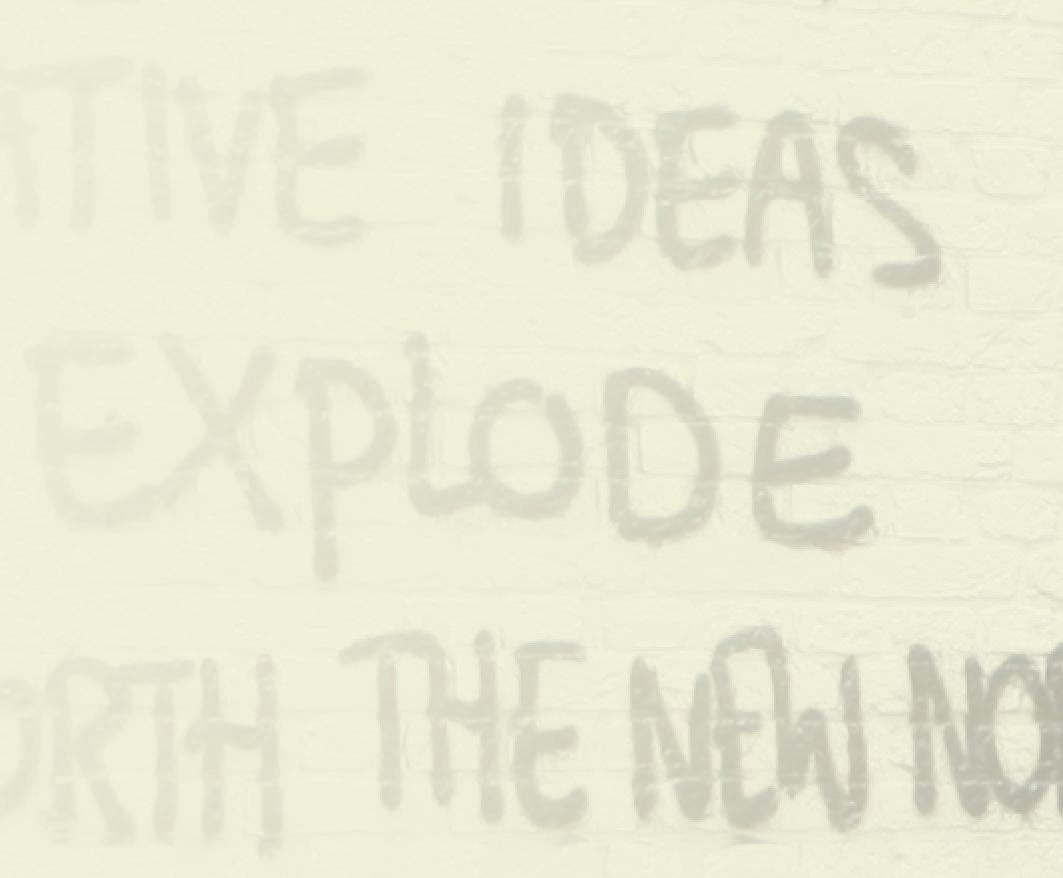 ATIVE IDEAS
EXPLODE
ORTH THE NEW NO